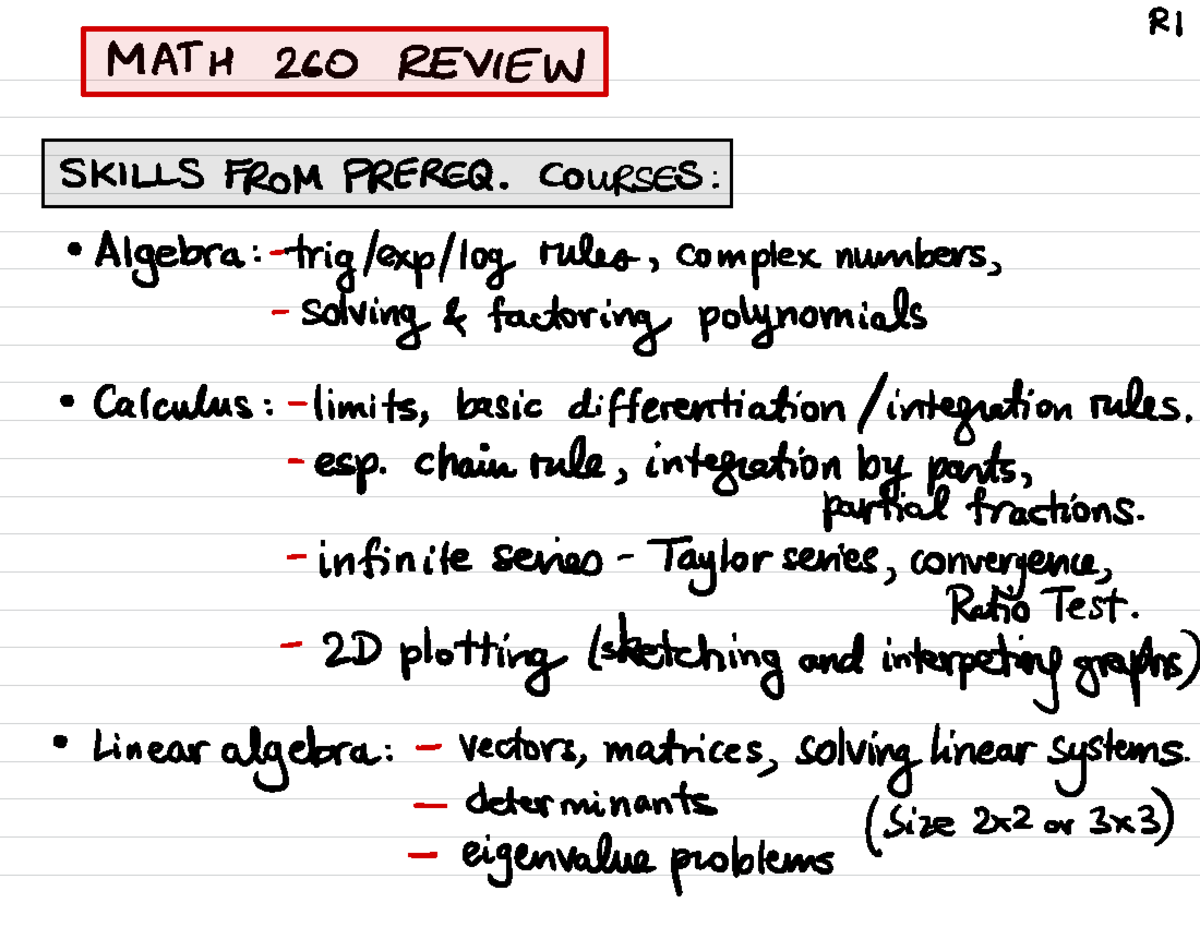 R1
MATH 260 REVIEW
SKILLS FROM PREREQ. COURSES:
• Algebra: - trig/exp/log rules, complex numbers,
- solving & factoring polynomials
• Calculus: - limits, basic differentiation/integration rules.
- esp. chain rule, integration by parts,
partial fractions.
- infinite series - Taylor series, convergence,
Ratio Test.
- 2D plotting (sketching and interpeting graphs)
• Linear algebra: - vectors, matrices, solving linear systems.
- determinants (size 2x2 or 3x3)
- eigenvalue problems